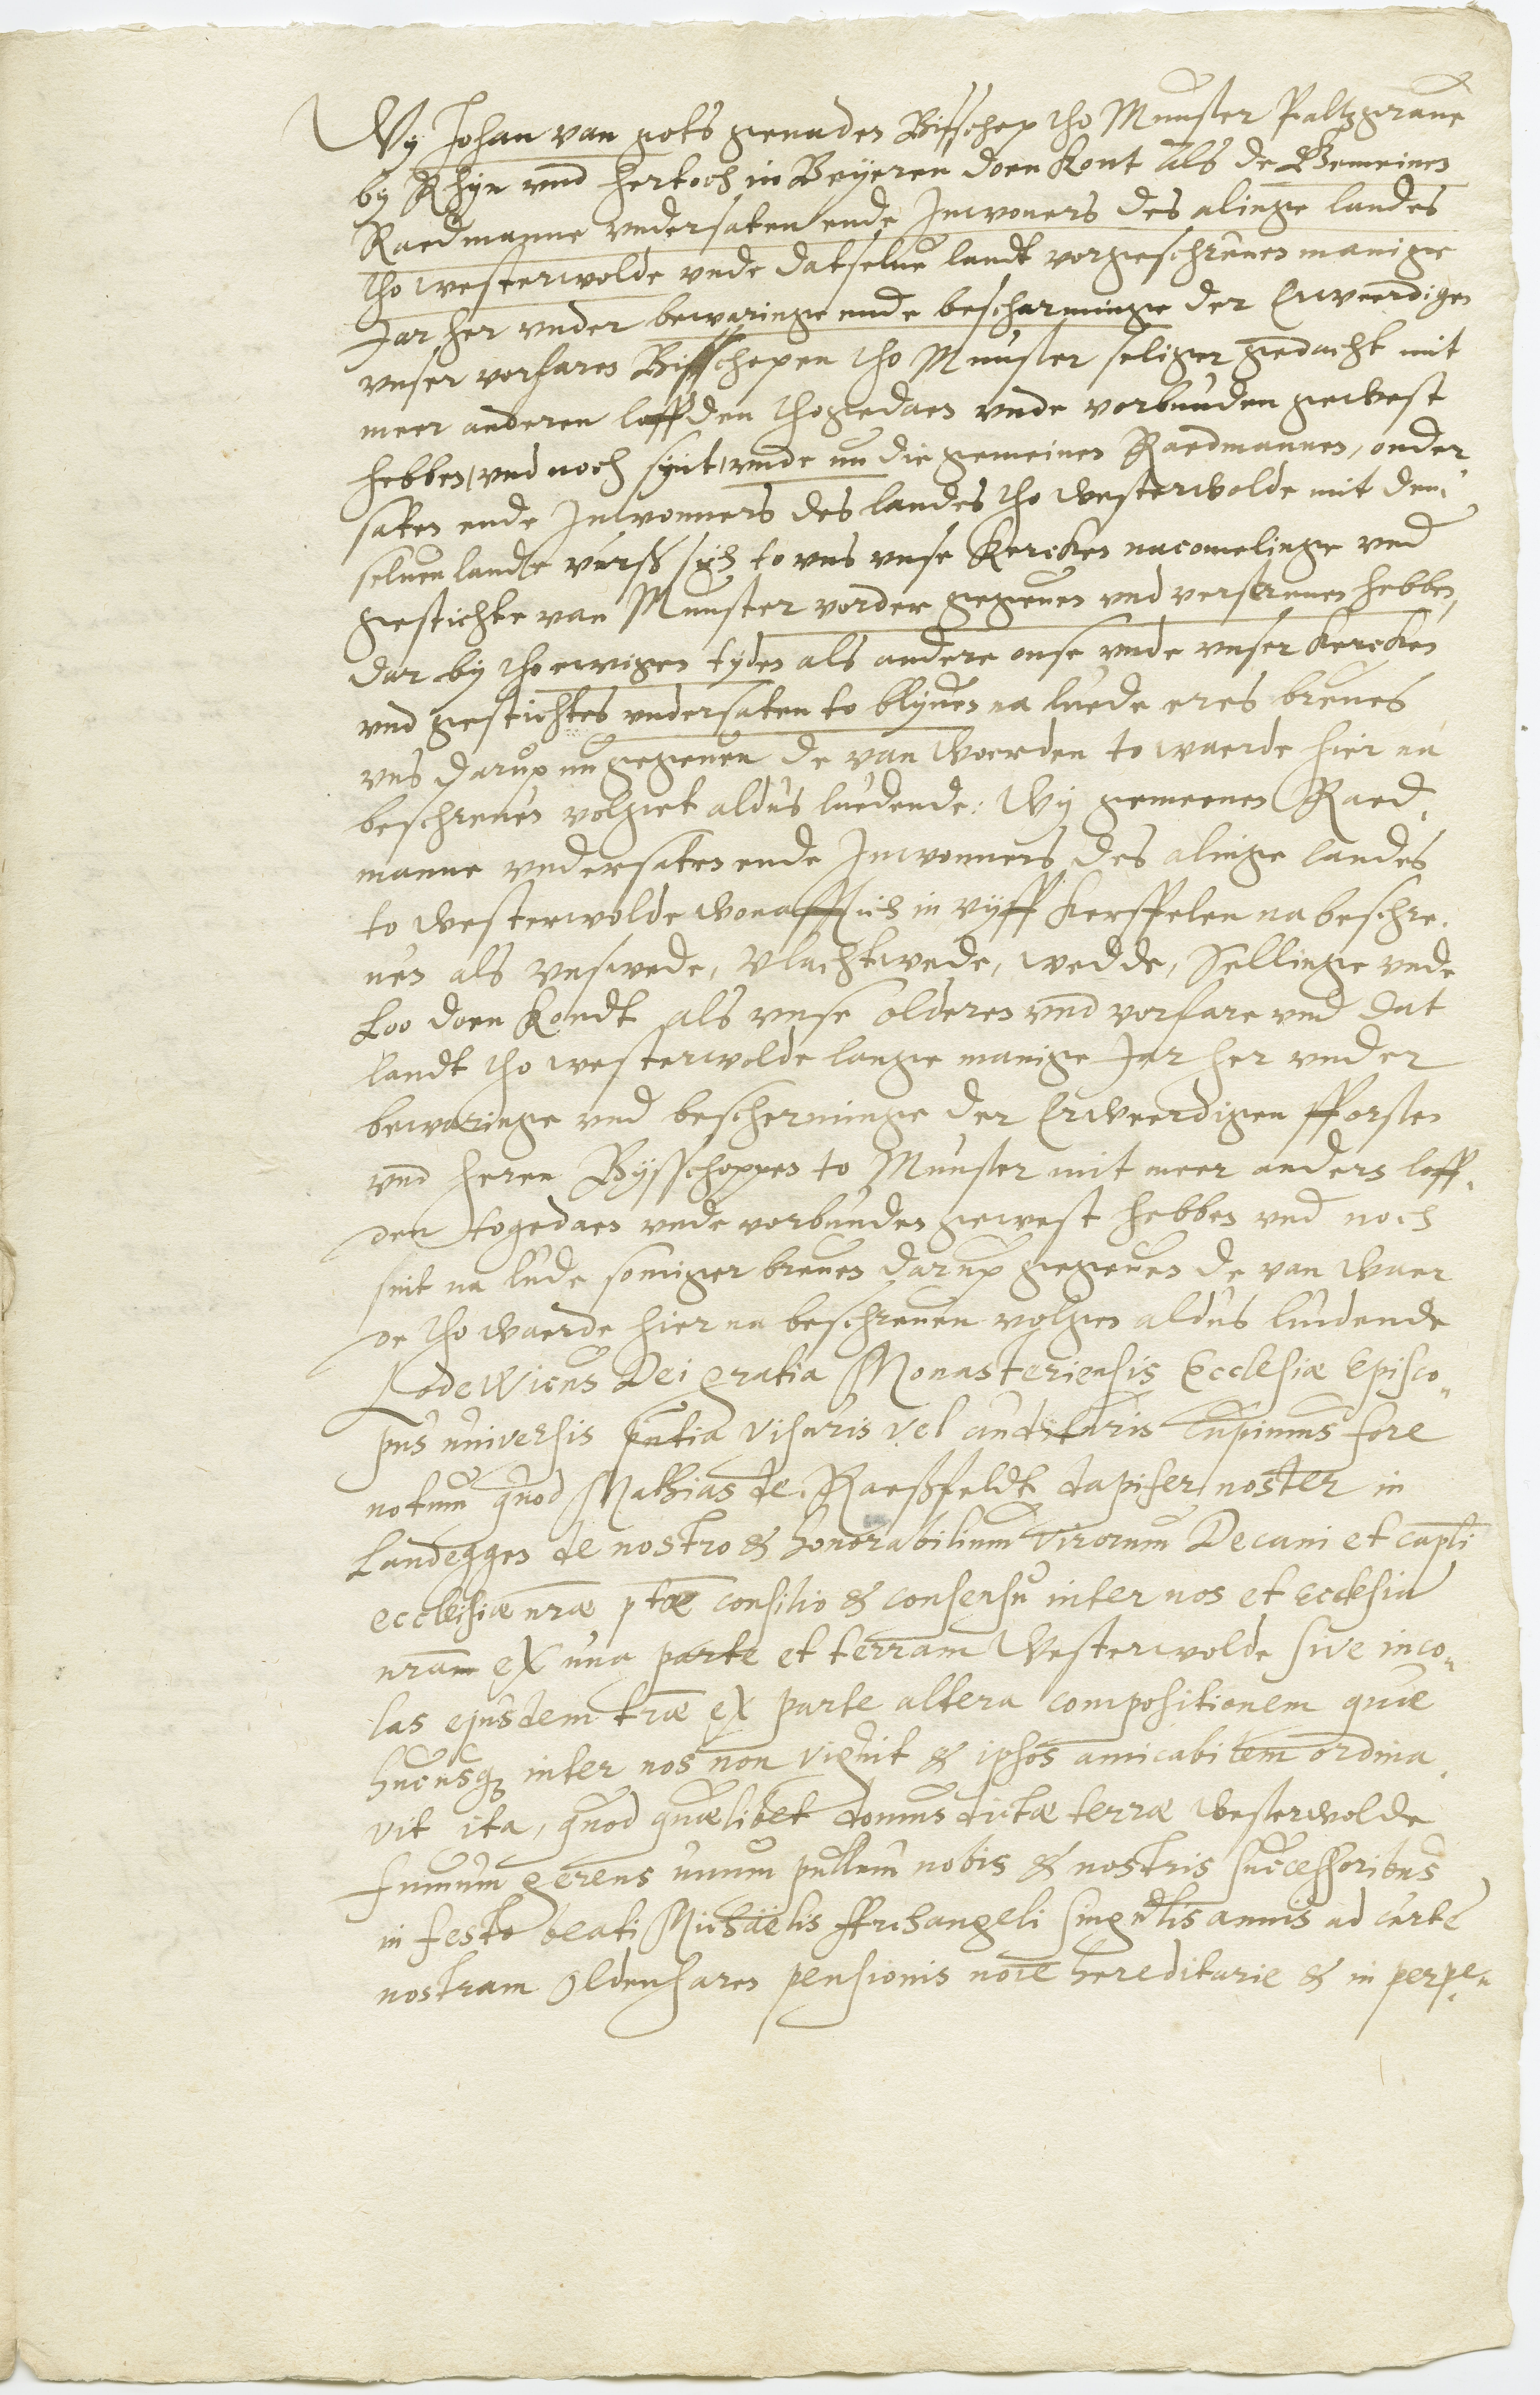 Wy Johan van gots genaden Bisschop tho Munster Paltzgraue
by Rhyn vnd hertoch in Beyeren doen kont als de Gemeinen
Raedmanne vndersaten ende Inwoners des alinge landes
tho westerwolde vnde datselue landt vorgeschreuen manige
Jar her vnder bewaringe ende bescharminge der Erweerdigen
vnser vorfaren Bisschopen tho Munster seliger gedacht mit
meer anderen loffden thogedaen vnde vorbunden gewest
hebben, vnd noch synt, vnde nu die gemeinen Raedmannen, onder
saten ende Inwonners des landes tho westerwolde mit den
seluen lande sich to vns vnse Kercken nacomelinge vnd
gestichte van Munster vorder gegeuen vnd verschreuen hebben,
dar by tho ewigen tyden als andere onse vnde vnser kercken
vnd gestichtes vndersaten to blyuen na luede eres breues
vns darup nu gegeuen de van woerden to waerde hier na
beschreuen volget aldus luedende: Wy gemeenen Raed,
manne vndersaten ende Inwonners des alinge landes
to westerwolde wonafftich in vyff kerspelen na beschre,
uen als vnswede, Vlachtwede, wedde, Sellinge vnde
Loo doen kondt als vnse olderen vnd vorfare vnd dat
landt tho westerwolde lange manige Jar her vnder
bewaringe vnd bescherminge der Erweerdigen fforsten
vnd heren Bysschoppen to Munster mit meer anders loff,
den togedaen vnde vorbunden gewest hebben vnd noch
sint na lude somiger breuen darup gegeuen de van waer
de tho waerde hier na beschreuen volgen aldus ludende
Lodewicus Dei gratia Monasteriensis Ecclesiæ Episco,,
pus universis pñtia visuris vel audituris Cupimus fore
notum quod Mathias de Raeßfeldt dapifer noster in
Landeggen de nostro & honorabilium virorum Decani et capli
ecclesiæ nræ ptæ consilio & consensu inter nos et ecclesia
nram ex una parte et terram Westerwolde sive inco,,
las ejusdem træ ex parte altera compositionem quæ
hucusq inter nos non viguit & ipsos amicabilem ordina,
vit ita, quod quælibet domus dictæ terræ westerwolde
fumum gerens unum pullum nobis & nostris successoribus
in festo beati Michäelis Archangeli singulis annis ad curte
nostram Oldenharen pensionis noïe hereditarie & in perpe,,